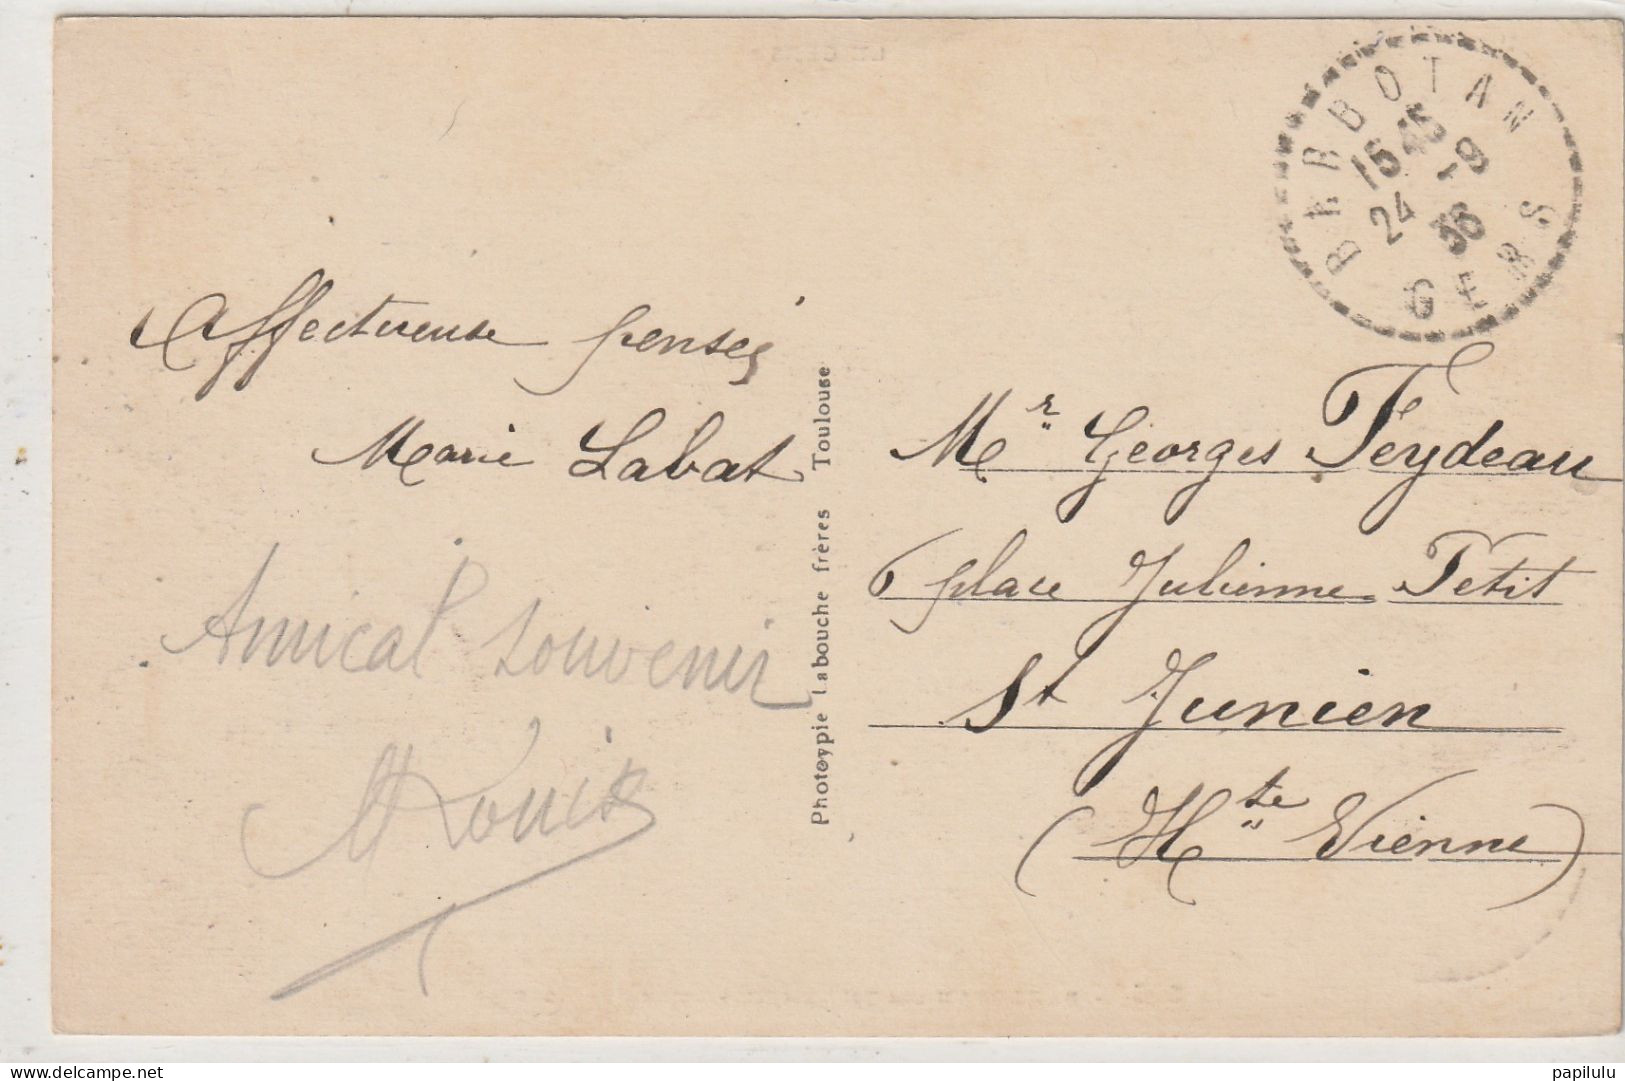 BARBOTAN
15 45
24 - 9
36
GERS
Affectueuse pensée
Marie Labat
Amical souvenir
Louis
Phototypie Labouche frères Toulouse
Mr Georges Feydeau
6 place Julienne Petit
St Junien
(Hte Vienne)
papilulu